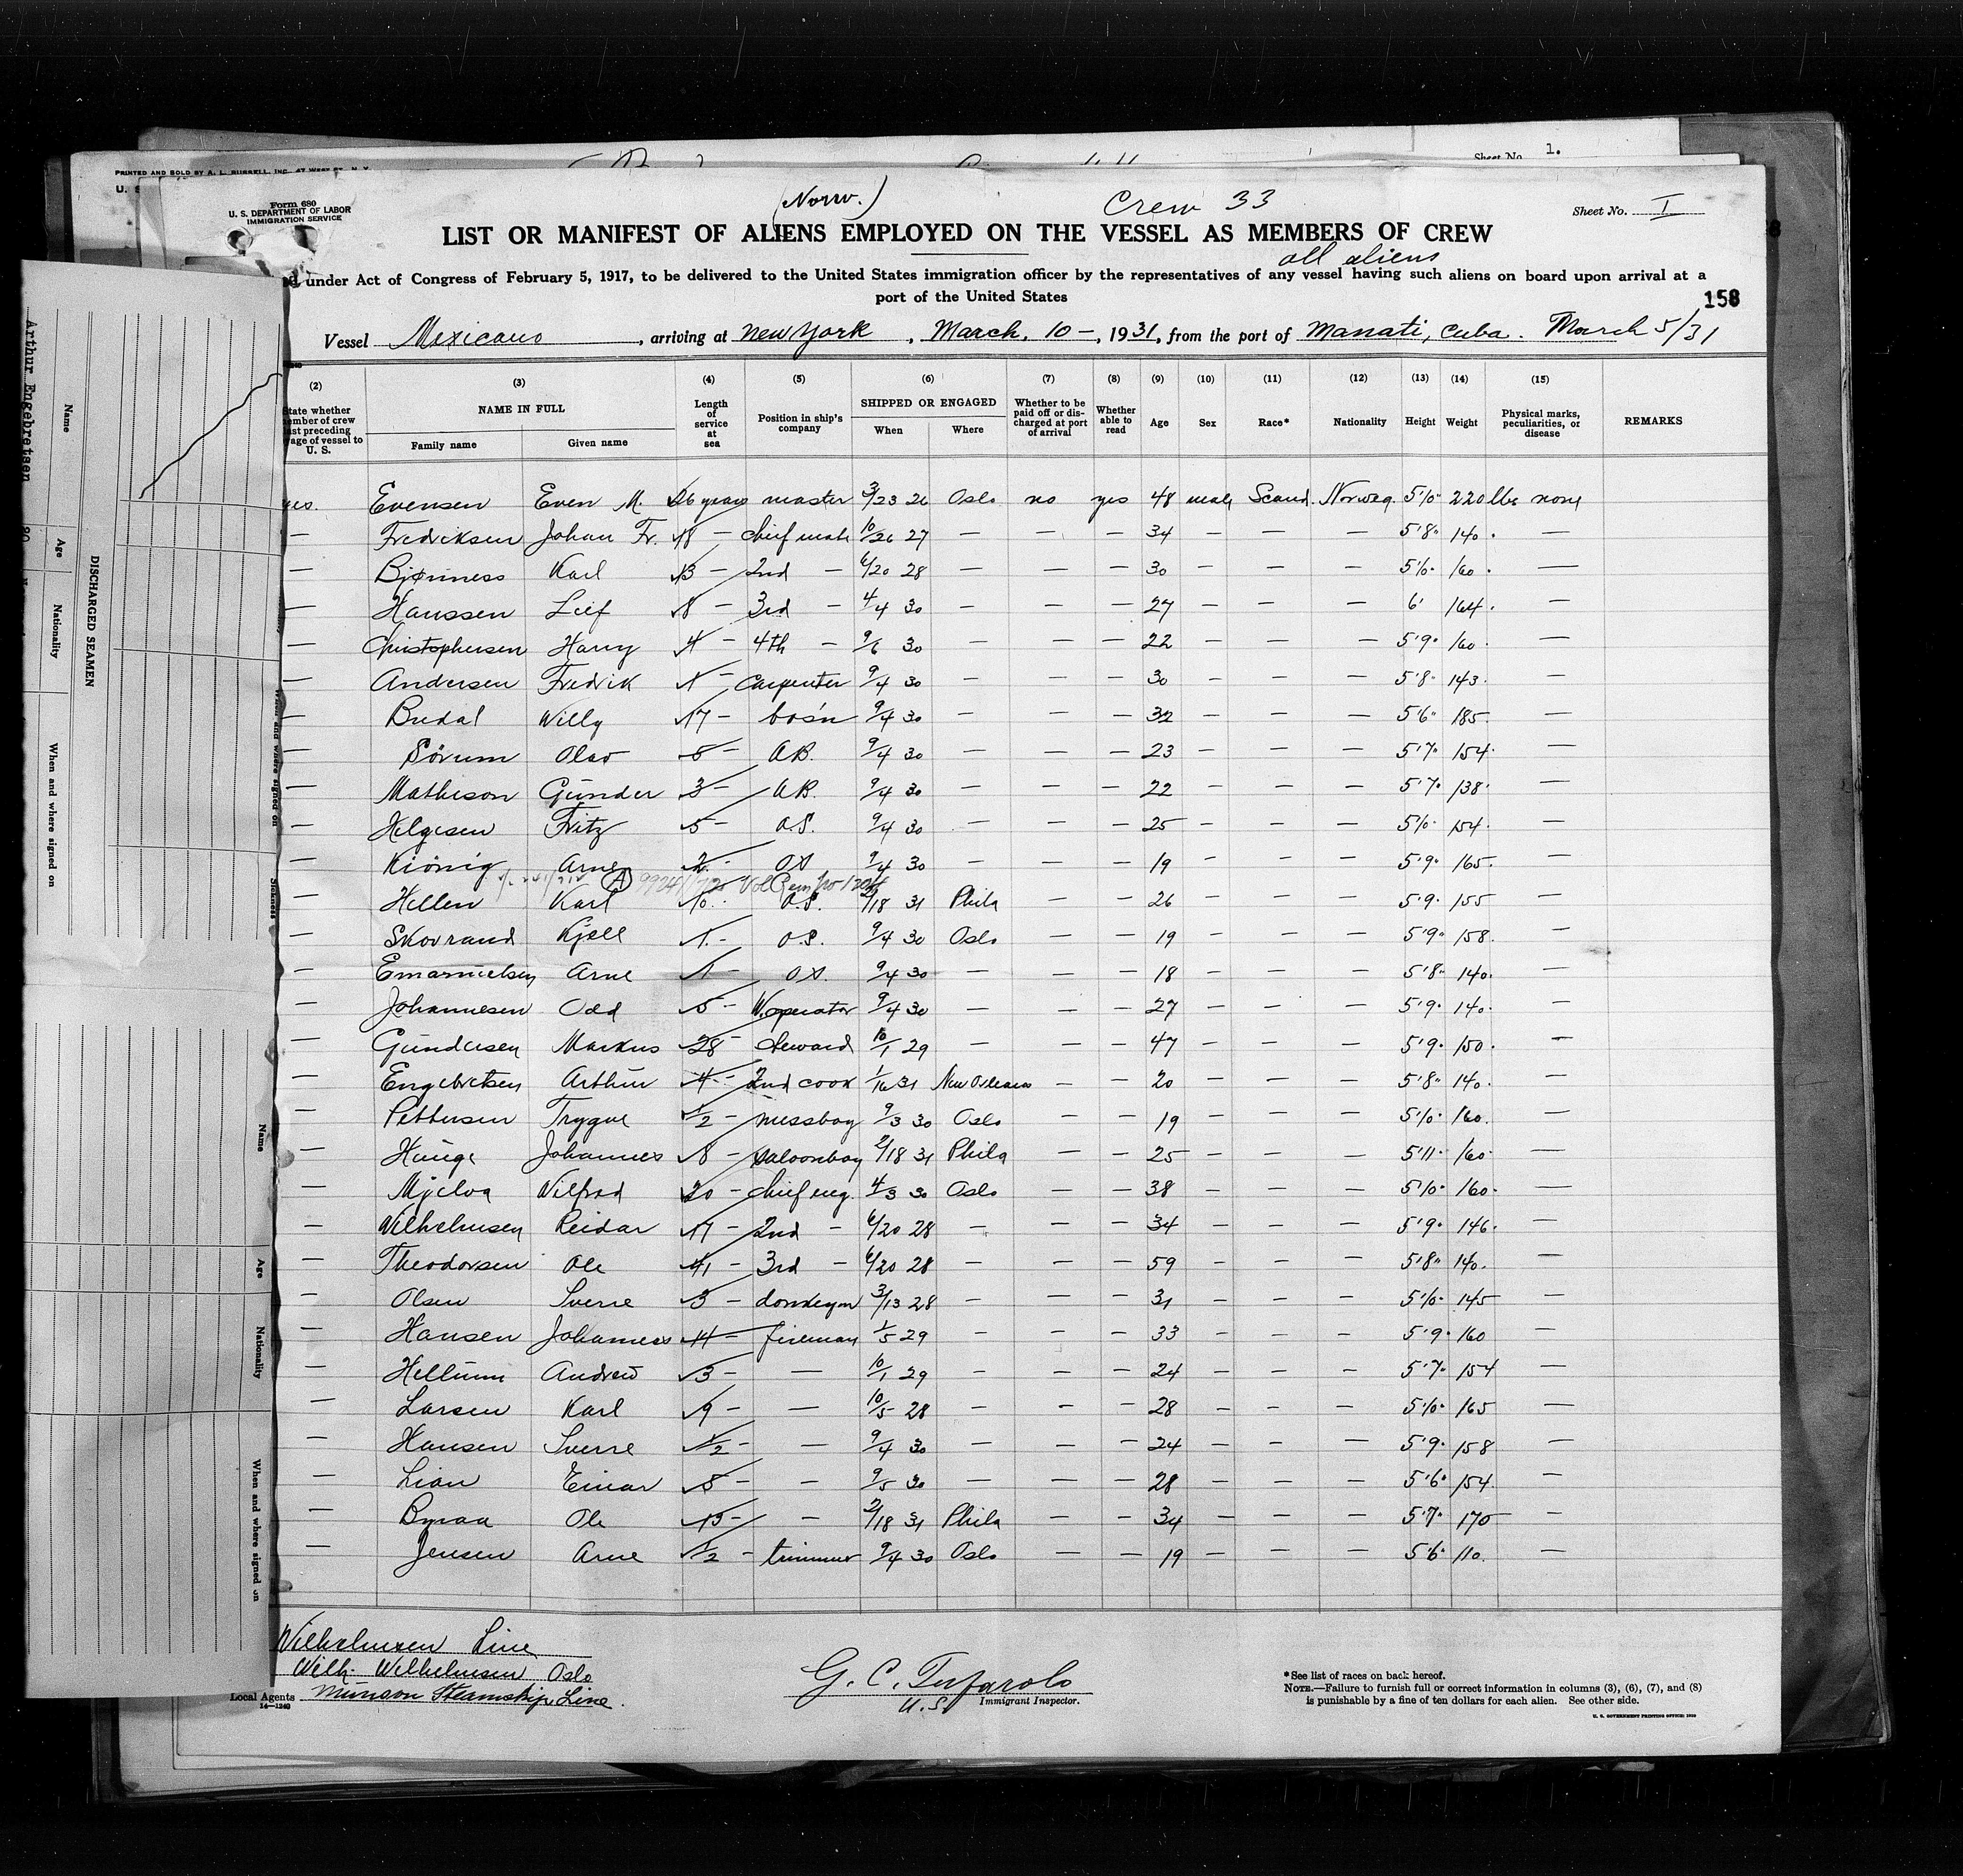 Sheet No. 1.
PRINTED AND SOLD BY A. L. RUSSELL, INC., 47 WEST ST., N. Y.
U. S
Form 680
U. S. DEPARTMENT OF LABOR
IMMIGRATION SERVICE
(Norw.)
Crew 33
Sheet No. I
LIST OR MANIFEST OF ALIENS EMPLOYED ON THE VESSEL AS MEMBERS OF CREW
all aliens
under Act of Congress of February 5, 1917, to be delivered to the United States immigration officer by the representatives of any vessel having such aliens on board upon arrival at a
port of the United States
158
Vessel Mexicano, arriving at New York, March. 10 -, 1931, from the port of Manati, Cuba. March 5/31
(2) (3) (4) (5) (6) (7) (8) (9) (10) (11) (12) (13) (14) (15)
State whether member of crew last preceding voyage of vessel to U. S. NAME IN FULL Family name Given name Length of service at sea Position in ship's company SHIPPED OR ENGAGED When Where Whether to be paid off or discharged at port of arrival Whether able to read Age Sex Race* Nationality Height Weight Physical marks, peculiarities, or disease REMARKS
yes. Evensen Even M. 26 years master 3/23 26 Oslo no yes 48 male Scand. Norweg. 5'10" 220 lbs none
— Fredriksen Johan Fr. 18 - chief mate 10/26 27 — — — 34 — — — 5'8" 140. —
— Bjønness Karl 13 - 2nd - 6/20 28 — — — 30 — — — 5'10" 160. —
— Hanssen Leif 8 - 3rd - 4/4 30 — — — 27 — — — 6' 164. —
— Christophersen Harry 4 - 4th - 9/6 30 — — — 22 — — — 5'9" 160. —
— Andersen Fredrik 1 - Carpenter 9/4 30 — — — 30 — — — 5'8" 143. —
— Budal Willy 17 - bos'n 9/4 30 — — — 32 — — — 5'6" 185. —
— Sörum Olav 5 - AB. 9/4 30 — — — 23 — — — 5'7" 154. —
— Mathison Gunder 3 - AB. 9/4 30 — — — 22 — — — 5'7" 138. —
— Helgesen Fritz 5 - O.S. 9/4 30 — — — 25 — — — 5'10" 154. —
— Kiönig Arne 2 - OS 9/4 30 — — — 19 — — — 5'9" 165. —
(A)
— Hellen Karl 10 - O.S. 2/18 31 Phila — — 26 — — — 5'9" 155 —
— Skovrand Kjell 1 - O.S. 9/4 30 Oslo — — 19 — — — 5'9" 158. —
— Emanuelsen Arne 1 - OS. 9/4 30 — — — 18 — — — 5'8" 140. —
— Johannesen Odd 5 - W. operator 9/4 30 — — — 27 — — — 5'9" 140. —
— Gundersen Markus 28 - Steward 10/1 29 — — — 47 — — — 5'9" 150. —
— Engebretsen Arthur 4 - 2nd cook 1/16 31 New Orleans — — 20 — — — 5'8" 140. —
— Pettersen Trygve 1/2 - messboy 9/3 30 Oslo — — 19 — — — 5'10" 160. —
— Hauge Johannes 8 - saloonboy 2/18 31 Phila — — 25 — — — 5'11" 160. —
— Mjelva Wilfred 20 - chief eng. 4/3 30 Oslo — — 38 — — — 5'10" 160. —
— Wilhelmsen Reidar 17 - 2nd - 6/20 28 — — — 34 — — — 5'9" 146. —
— Theodorsen Ole 41 - 3rd - 6/20 28 — — — 59 — — — 5'8" 140. —
— Olsen Sverre 3 - donkeym 3/13 28 — — — 31 — — — 5'10" 145 —
— Hansen Johannes 14 - fireman 1/5 29 — — — 33 — — — 5'9" 160 —
— Hellum Andrew 3 - — 10/1 29 — — — 24 — — — 5'7" 154 —
— Larsen Karl 9 - — 10/5 28 — — — 28 — — — 5'10" 165 —
— Hansen Sverre 1/2 - — 9/4 30 — — — 24 — — — 5'9" 158 —
— Lian Einar 8 - — 9/5 30 — — — 28 — — — 5'6" 154. —
— Ole 15 - — 2/18 31 Phila — — 34 — — — 5'7" 170 —
— Jensen Arne 1/2 - trimmer 9/4 30 Oslo — — 19 — — — 5'6" 110. —
Wilhelmsen Line
Wilh. Wilhelmsen Oslo
Local Agents Munson Steamship Line.
14—1240
G. C. Tufarolo
U.S. Immigrant Inspector.
*See list of races on back hereof.
NOTE.—Failure to furnish full or correct information in columns (3), (6), (7), and (8)
is punishable by a fine of ten dollars for each alien. See other side.
U. S. GOVERNMENT PRINTING OFFICE: 1929
DISCHARGED SEAMEN
Name Age Nationality When and where signed on
Arthur Engebretsen 20
When and where signed on Sickness
Name Age Nationality When and where signed on